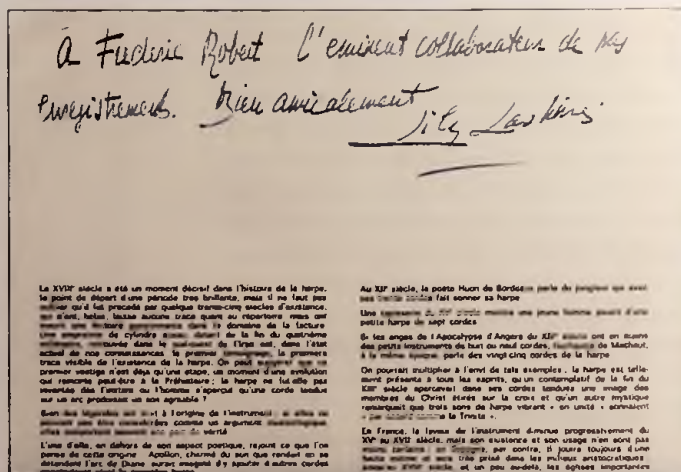 à Frédéric Robert l'eminent collaborateur de
enregistrements. Bien amicalement
Lily Laskine
Le XVIIIe siècle a été un moment décisif dans l'histoire de la harpe,
le point de départ d'une période très brillante, mais il ne faut pas
oublier qu'il fut précédé par quelque trente-cinq siècles d'existence,
qui n'ont, hélas, laissé aucune trace quant au répertoire mais ont
histoire dans le domaine de la facture.
de cylindre datant de la fin du quatrième
retrouvée dans le de l'Irak est, dans l'état
actuel de nos connaissances, le premier la première
trace visible de l'existence de la harpe. On peut que ce
premier vestige n'est déjà qu'une étape, un moment d'une évolution
qui remonte peut-être à la Préhistoire ; la harpe ne fut-elle pas
inventée dès l'instant où l'homme s'aperçut qu'une corde tendue
sur un arc produisait un son agréable ?
Bien des légendes ont à l'origine de l'instrument ; si elles ne
peuvent pas être considérées comme un argument
de vérité
L'une d'elle, en dehors de son aspect poétique, rejoint ce que l'on
pense de cette origine : Apollon, charmé du son que rendait en se
détendant l'arc de Diane aurait imaginé d'y ajouter d'autres cordes
Au XIIe siècle, le poète Huon de Bordeaux parle du jongleur qui avec
ses trente cordes fait sonner sa harpe
Une du siècle montre une jeune femme d'une
petite harpe de sept cordes
Si les anges de l'Apocalypse d'Angers du ont en mains
des petits instruments de huit ou neuf cordes, de Machaut,
à la même époque, parle des vingt-cinq cordes de la harpe
On pourrait multiplier à l'envi de tels exemples ; la harpe est telle-
ment présente à tous les esprits, qu'un contemplatif de la fin du
XIIIe siècle apercevait dans ses cordes tendues une image des
membres du Christ étirés sur la croix et qu'un autre mystique
remarquait que trois sons de harpe vibrant « en unité » sonnaient
comme la Trinité ».
En France, la faveur de l'instrument diminue progressivement du
XVe au XVIIe siècle, mais son existence et son usage n'en sont pas
moins certains ; en Espagne, par contre, il jouira toujours d'une
haute estime et sera très prisé dans les milieux aristocratiques
jusqu'au siècle, et un peu au-delà, les églises importantes